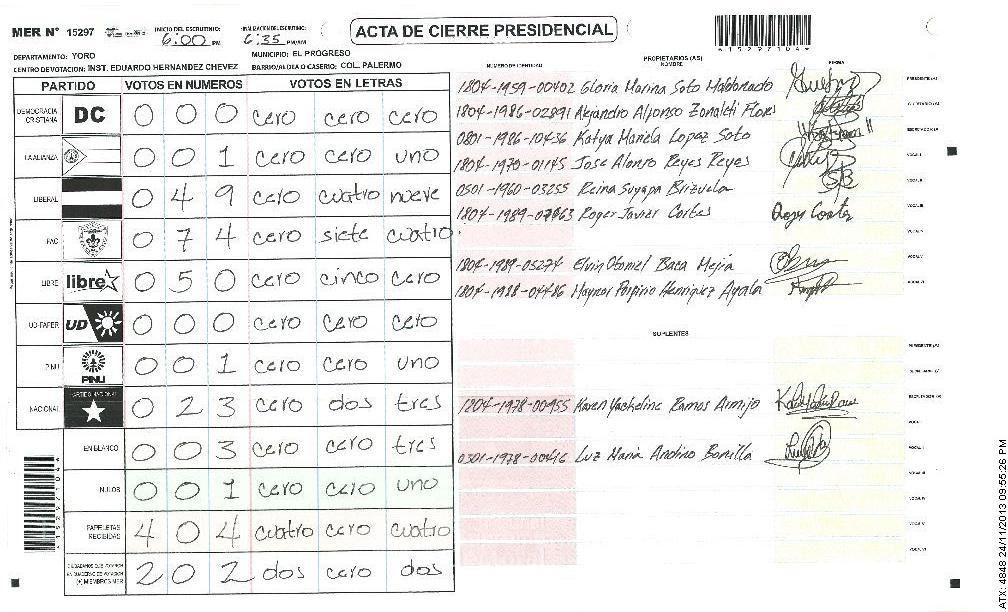 MER N° 15297
INICIO DEL ESCRUTINIO: 6:00 PM
FINALIZACION DEL ESCRUTINIO: 6:35 PM/AM
ACTA DE CIERRE PRESIDENCIAL
*15297104*
DEPARTAMENTO: YORO
MUNICIPIO: EL PROGRESO
CENTRO DEVOTACION: INST. EDUARDO HERNANDEZ CHEVEZ
BARRIO/ALDEA O CASERIO: COL. PALERMO
PARTIDO VOTOS EN NUMEROS VOTOS EN LETRAS
DEMOCRACIA CRISTIANA DC 0 0 0 cero cero cero
LA ALIANZA 0 0 1 cero cero uno
LIBERAL 0 4 9 cero cuatro nueve
PAC 0 7 4 cero siete cuatro
LIBRE libre 0 5 0 cero cinco cero
UD-FAPER UD 0 0 0 cero cero cero
PINU PINU 0 0 1 cero cero uno
NACIONAL PARTIDO NACIONAL 0 2 3 cero dos tres
EN BLANCO 0 0 3 cero cero tres
NULOS 0 0 1 cero cero uno
PAPELETAS RECIBIDAS 4 0 4 cuatro cero cuatro
CIUDADANOS QUE VOTARON EN CUADERNO DE VOTACION (+) MIEMBROS MER 2 0 2 dos cero dos
*15297104*
PROPIETARIOS (AS)
NUMERO DE IDENTIDAD NOMBRE FIRMA
1804-1959-00402 Gloria Marina Soto Maldonado PRESIDENTE (A)
1804-1986-02891 Alejandro Alfonso Zonaleti Flores SECRETARIO (A)
0801-1986-10436 Katya Mariela Lopez Soto ESCRUTADOR (A)
1804-1970-01145 Jose Alonso Reyes Reyes VOCAL I
0501-1960-03255 Reina Suyapa Brizuela
1804-1989-07463 Roger Javier Cortes Rogy Cortes VOCAL III
VOCAL IV
1804-1989-05274 Elvin Otoniel Baca Mejia VOCAL V
1804-1988-04486 Maynor Porfirio Henriquez Ayala VOCAL VI
SUPLENTES
PRESIDENTE (A)
SECRETARIO (A)
1204-1978-00955 Karen Yackeline Ramos Armijo ESCRUTADOR (A)
VOCAL I
0301-1978-00416 Luz Maria Andino Bonilla
VOCAL III
VOCAL IV
VOCAL V
VOCAL VI
ATX: 4848 24/11/2013 09:55:26 PM